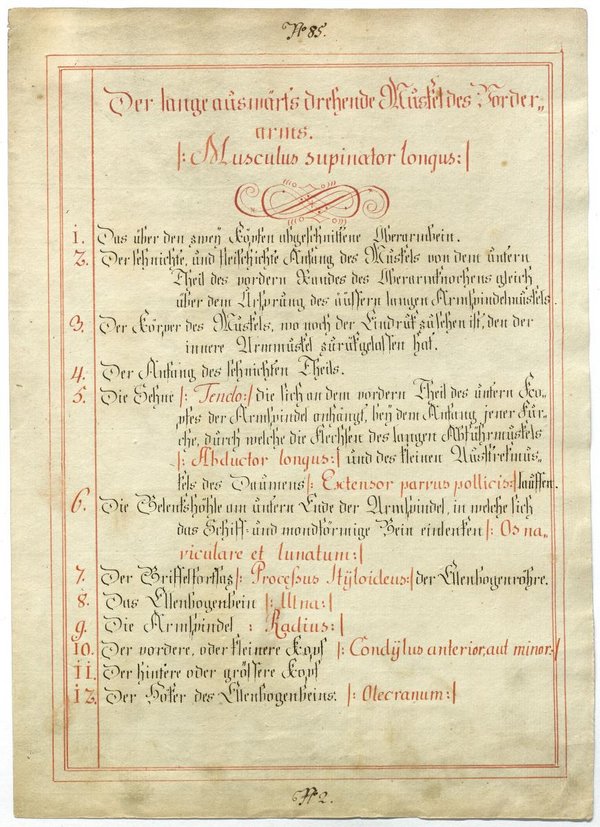 Nº 85.
Der lange auswärts drehende Muskel des Vorder„
arms.
|: Musculus supinator longus:|
1. Das über den zwey Köpfen abgeschnittene Oberarmbein.
2. Der sehnichte, und fleischichte Anfang des Muskels von dem untern
Theil des vordern Randes des Oberarmknochens gleich
über dem Ursprung des äüssern langen Armspindelmuskels.
3. Der Körper des Muskels, wo noch der Eindruk zusehen ist, den der
innere Armmuskel zurükgelassen hat.
4. Der Anfang des sehnichten Theils.
5. Die Sehne |: Tendo:| die sich an dem vordern Theil des untern Ko„
pfes der Armspindel anhängt, bey dem Anfang jener Für„
che, durch welche die Flechsen des langen Abführmuskels
|: Abductor longus:| und des kleinen Ausstrekmus„
kels des Daumens |: Extensor parvus pollicis:| lauffen.
6. Die Gelenkshöhle am untern Ende der Armspindel, in welche sich
das Schiff- und mondförmige Bein einlenken |: Os na„
viculare et lunatum:|
7. Der Griffelfortsaz |: Processus stÿloideus:| der Ellenbogenröhre.
8. Das Ellenbogenbein |: Ulna:|
9. Die Armspindel : Radius:|
10. Der vordere, oder kleinere Kopf |: Condÿlus anterior, aut minor:|
11. Der hintere oder grössere Kopf
12. Der Höker des Ellenbogenbeins. |: Olecranum:|
Nº 2.